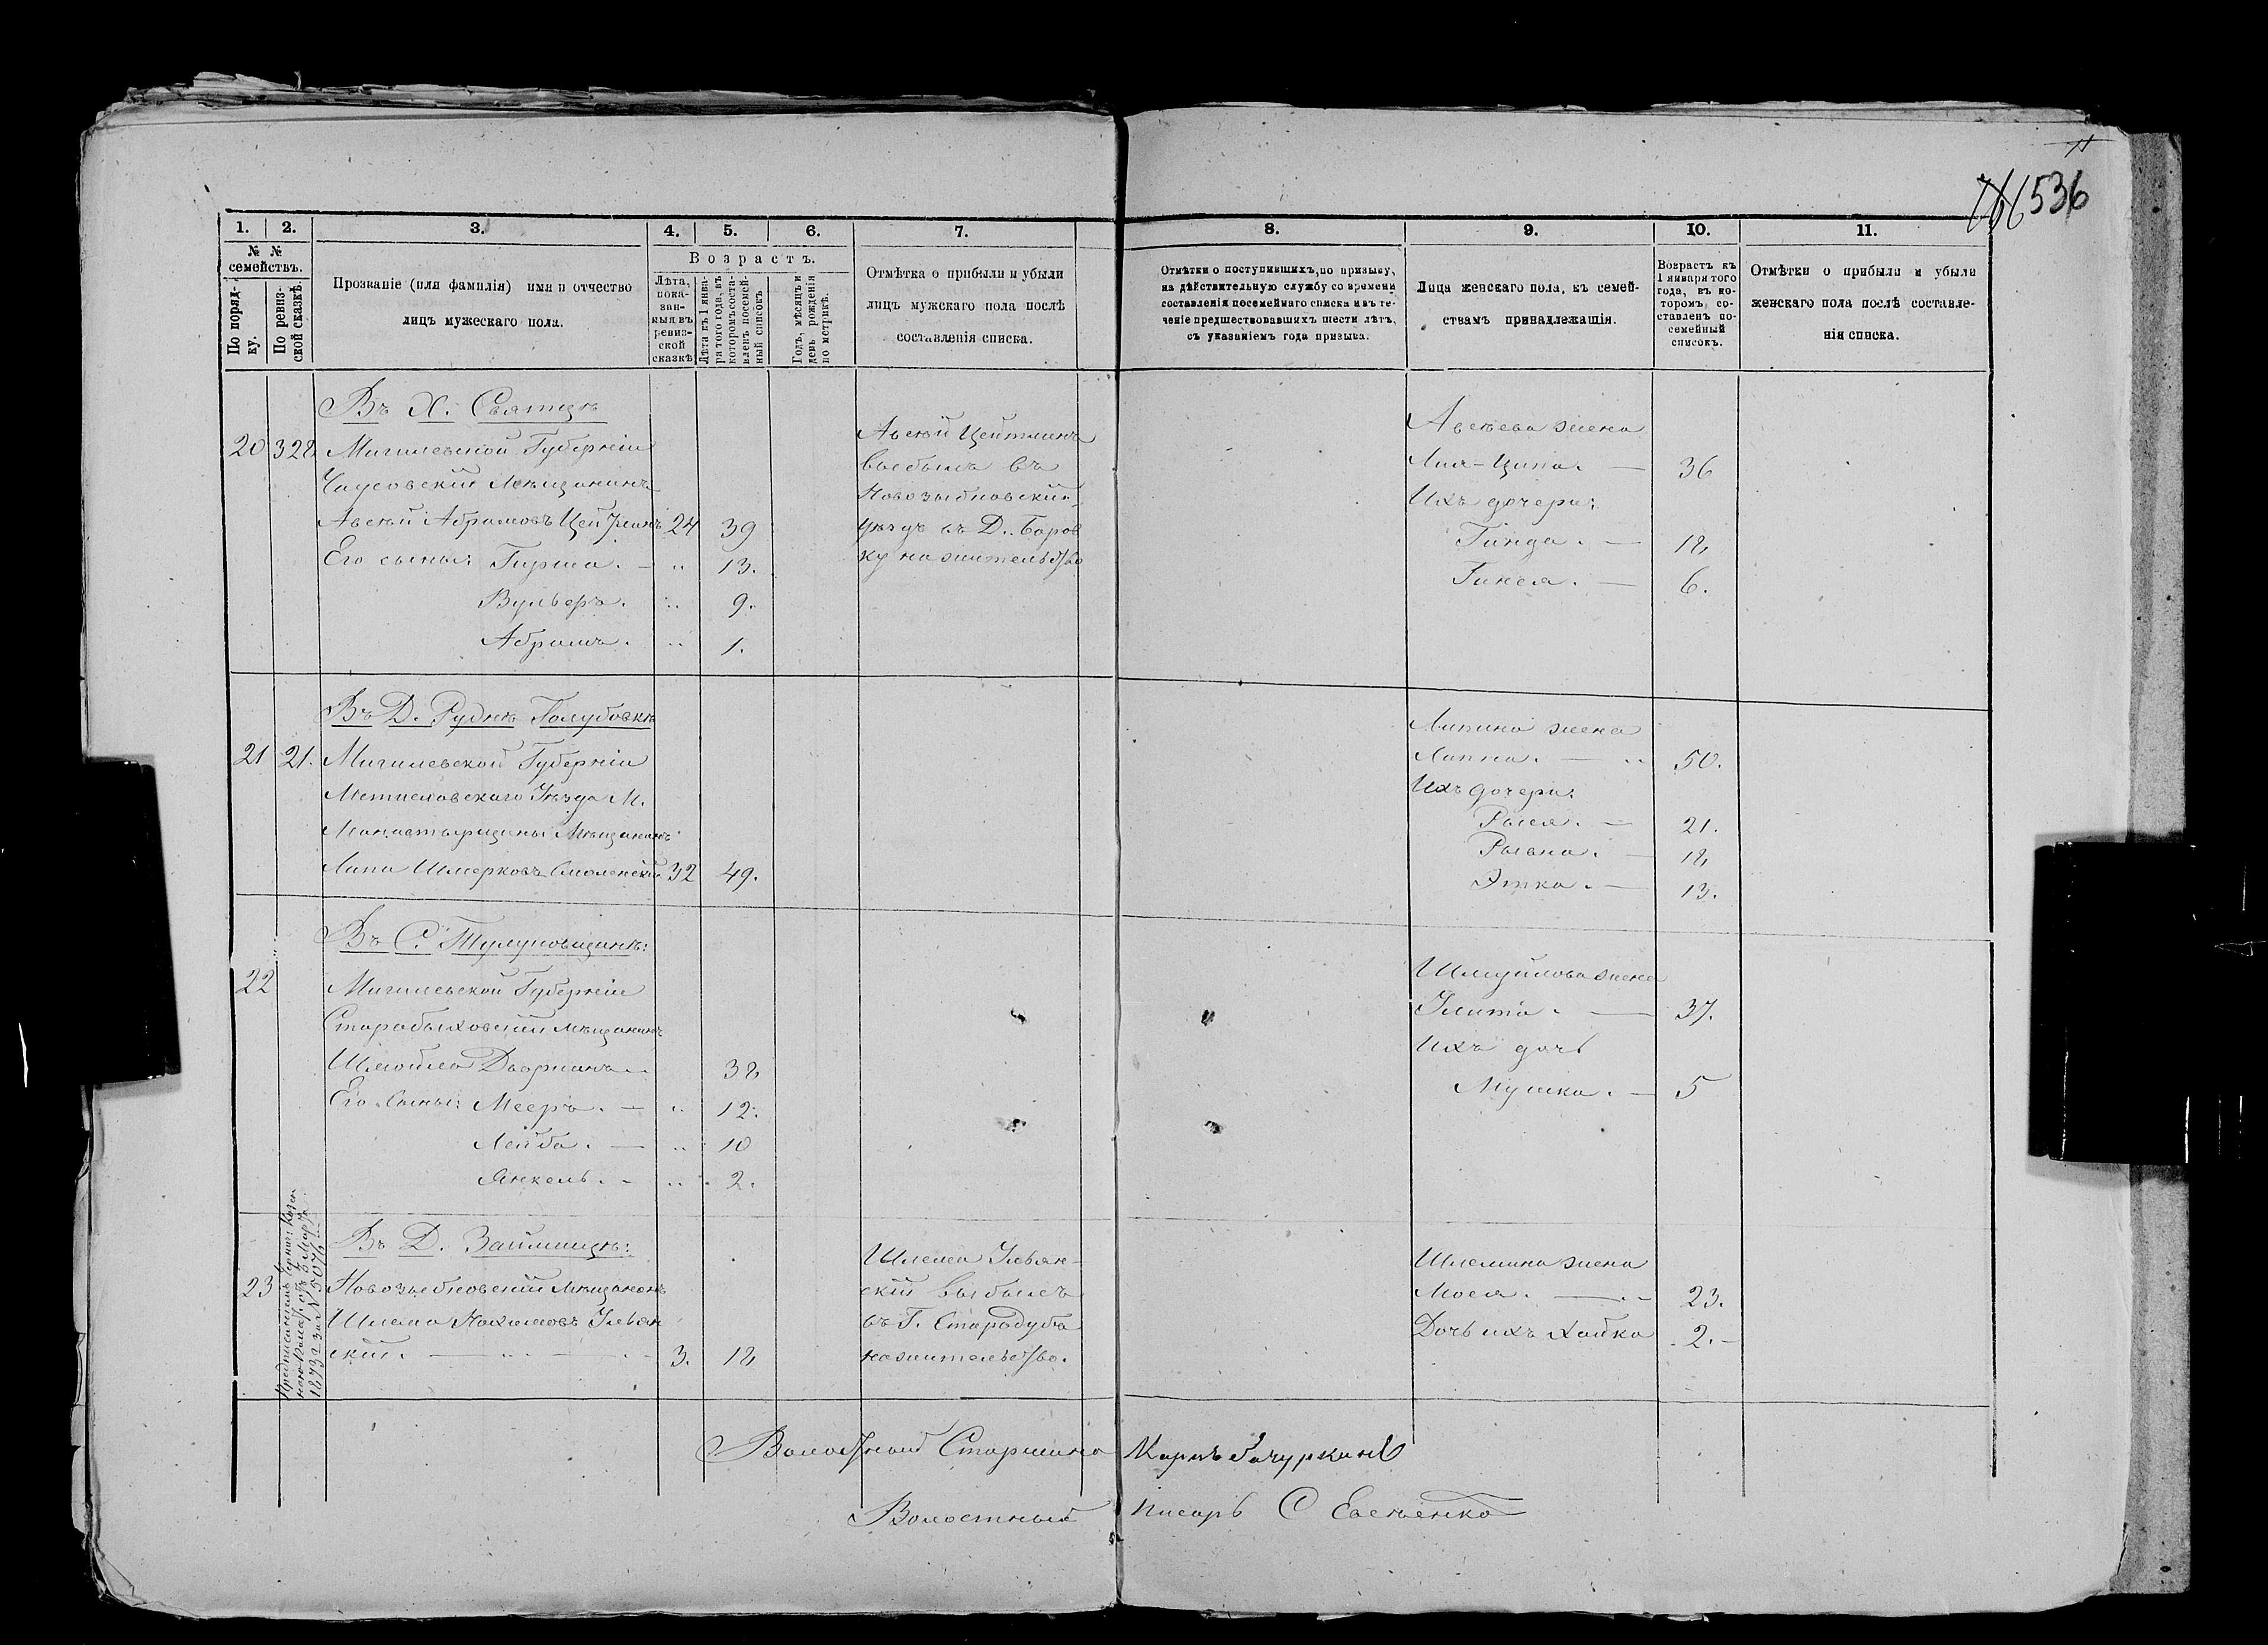 11
536
1.
2.
3.
4.
5.
6.
7.
8.
9.
10.
11.
№ №
семействъ.
По поряд-
ку.
По ревиз-
ской сказкѣ.
Прозваніе (или фамилія) имя и отчество
лицъ мужескаго пола.
Возрастъ.
Лѣта,
пока-
зан-
ныя въ
ревиз-
ской
сказкѣ
Лѣта къ 1 янва-
ря того года, въ
которомъ соста-
вленъ посемей-
ный списокъ
Годъ, мѣсяцъ и
день рожденія
по метрикѣ.
Отмѣтка о прибыли и убыли
лицъ мужскаго пола послѣ
составленія списка.
Отмѣтки о поступившихъ, по призыву,
на дѣйствительную службу со времени
составленія посемейнаго списка и въ те-
ченіе предшествовавшихъ шести лѣтъ,
съ указаніемъ года призыва.
Лица женскаго пола, къ семей-
ствамъ принадлежащія.
Возрастъ къ
1 января того
года, въ ко-
торомъ со-
ставленъ по-
семейный
списокъ.
Отмѣтки о прибыли и убыли
женскаго пола послѣ составле-
нія списка.
Въ Х. Святцѣ
20 328 Могилевской Губерніи
Чаусовскій Мѣщанинъ
Авсѣй Абрамовъ Цейтлинъ 24 39
Его сыны: Гирша. — „ 13.
Вульфъ. „ 9.
Абрамъ. „ 1.
Авсѣй Цейтлинъ
выбылъ въ
Новозыбковскій
уѣздъ въ Д. Боров
ку на жительство
Авсѣева жена
Лия-Ципа. — 36
Ихъ дочери:
Гинда. — 18
Гинеся. — 6.
Въ Д. Руднѣ Голубовкѣ
21 21. Могилевской Губерніи
Мстиславскаго Уѣзда М.
Монастырщины Мѣщанинъ
Липа Шмерковъ Смоленскій 32 49.
Липина жена
Ханна. — 50.
Ихъ дочери:
Рыся. — 21.
Рывка. — 18
Этка. — 13.
Въ С. Тулуковщинѣ:
22 Могилевской Губерніи
Старобыховскій мѣщанинъ
Шмойла Дворкинъ 38
Его сыны: Мееръ. — „ 12.
Лейба. — „ 10
Янкель. — „ 2.
Шмуйлова жена
Злита. — 37.
Ихъ дочь
Мушка. — 5
Предписаніемъ Черниг: Казен-
ною Палат. отъ 3 Марта
1873 г за № 5076
Въ Д. Займищѣ:
23 Новозыбковскій мѣщанинъ
Шлема Нохимовъ Ульян
скій. — 3. 18
Шлема Ульян-
скій выбылъ
въ Г. Стародубъ
на жительство.
Шлемина жена
Мося. — 23.
Дочь ихъ Хайка 2. —
Волостной Старшина Карпъ
Волостный писарь С Евсѣенко